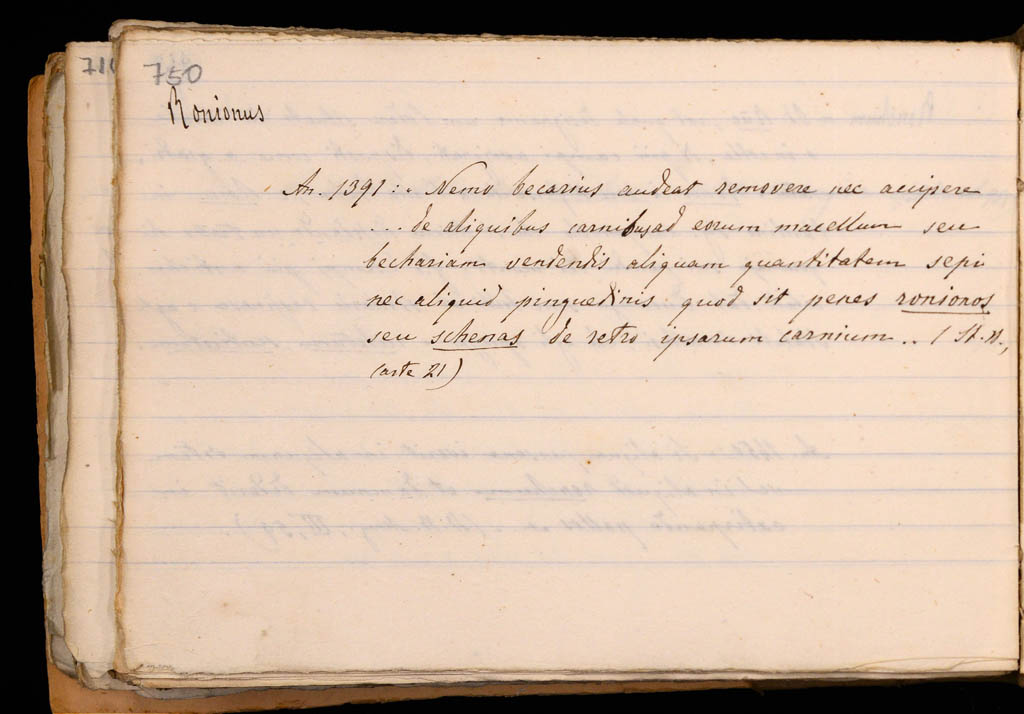 750
Ronionus
An. 1391: « Nemo becarius audeat removere nec accipere
... de aliquibus carnibus ad eorum macellum seu
bechariam vendendis aliquam quantitatem sepi
nec aliquid pinguedinis quod sit penes ronionos
seu schenas de retro ipsarum carnium .. (St. N.,
carte 21)